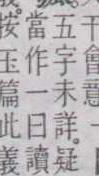 干會意
五字未詳疑
當作一曰讀
按玉篇此義